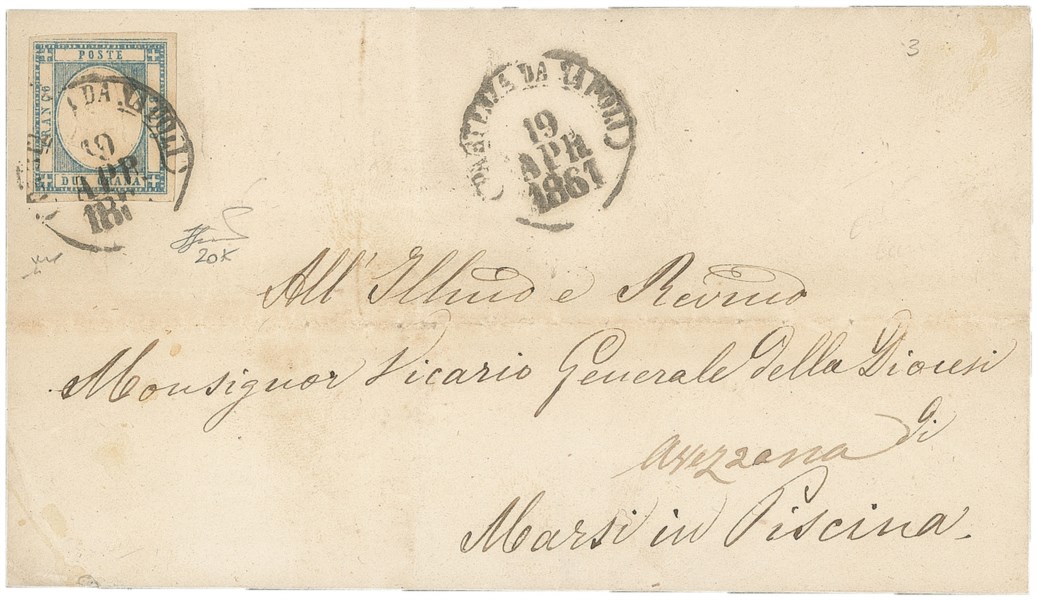 3
POSTE
FRANCO
DUE GRANA
DA NAPOLI
19
APR
18
(PARTENZA DA NAPOLI)
19
APR
1861
20K
All' Illmo e Revmo
Monsignor Vicario Generale della Diocesi
di
Avezzana
Marsi in Piscina.